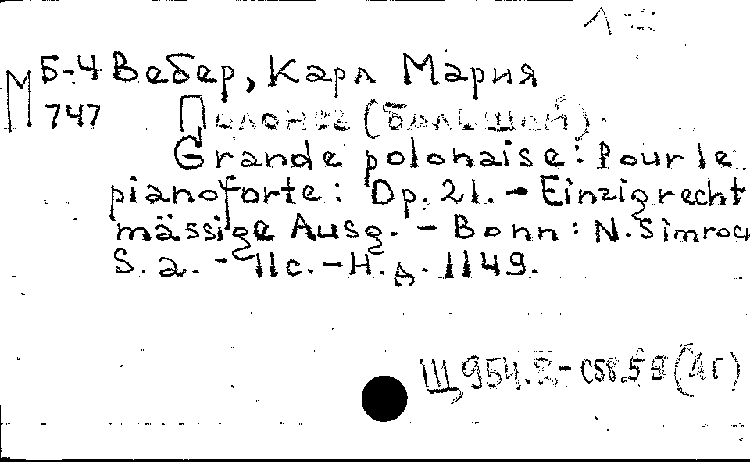 М Б-4 Вебер, Карл Мария
747 Полонез (большой).
Grande polonaise: Pour le
pianoforte: Op. 21. - Einzig recht
mässige Ausg. - Bonn: N. Simroc
S. a. - 11 с. - Н. д. 1149.
Щ 954.2-